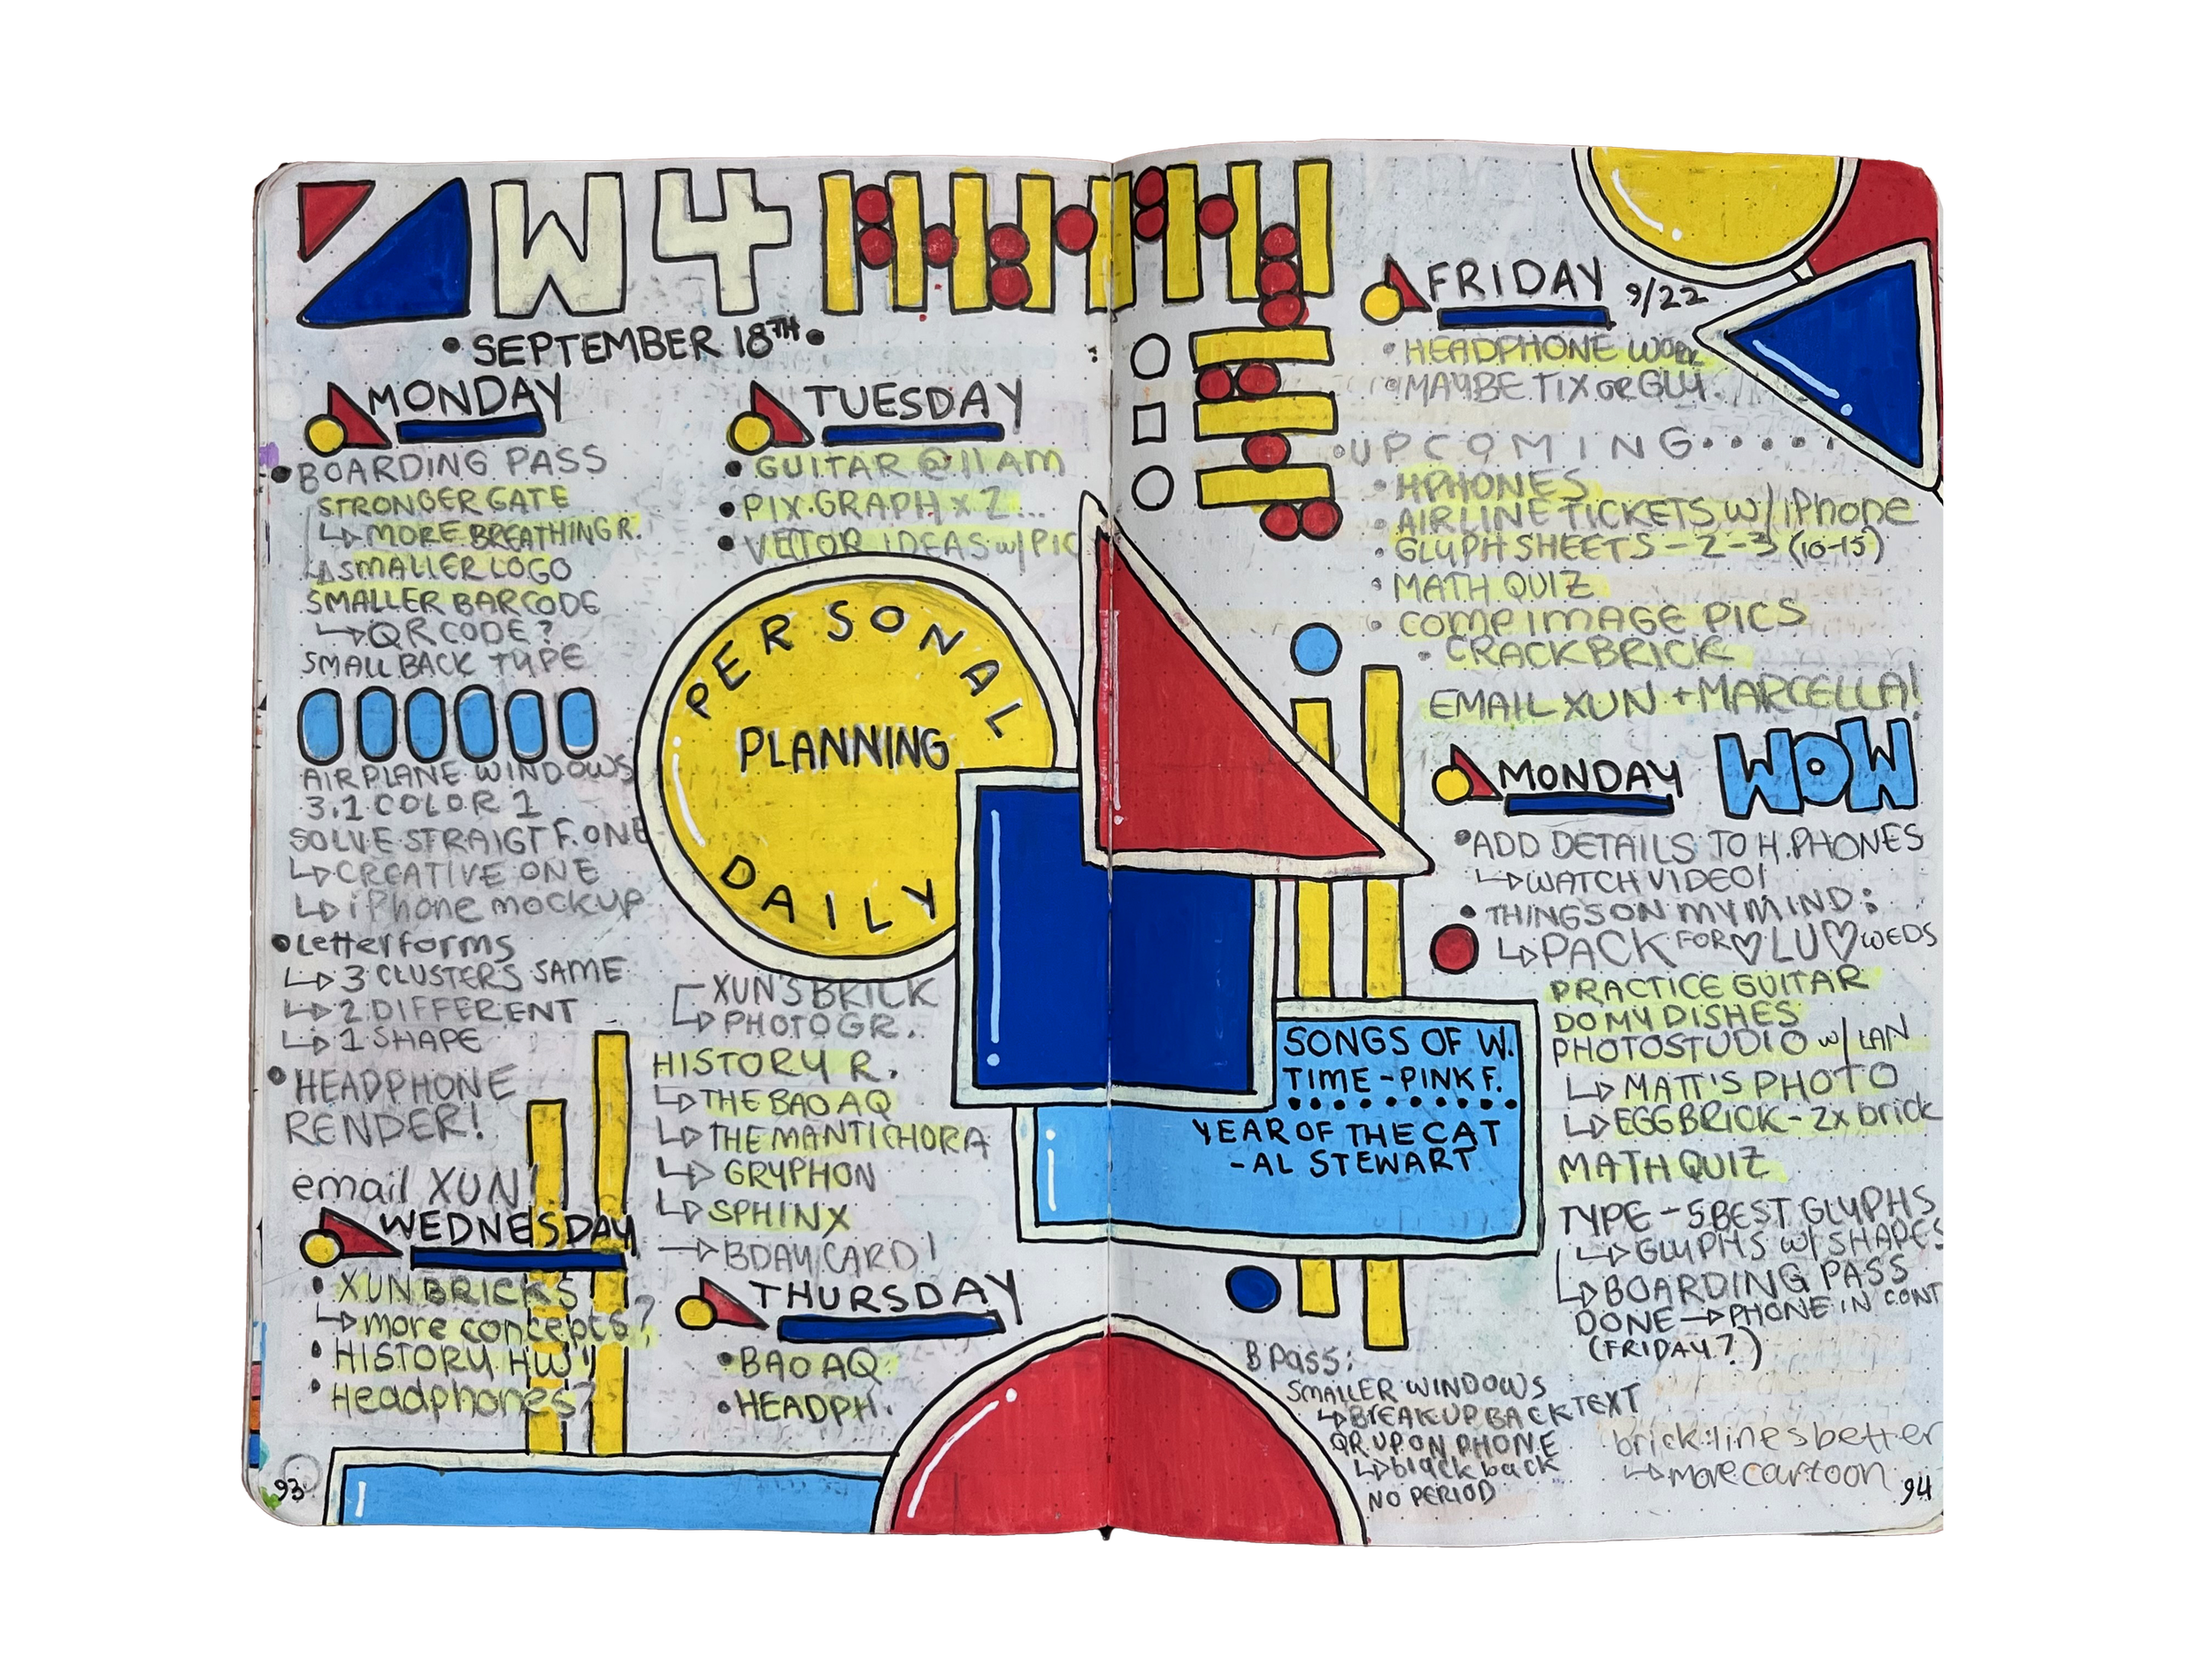 W4
• SEPTEMBER 18TH •
MONDAY
• BOARDING PASS
STRONGER GATE
↳ MORE BREATHING R.
↳ SMALLER LOGO
SMALLER BARCODE
↳ QR CODE?
SMALL BACK TYPE
AIRPLANE WINDOWS
3.1 COLOR 1
SOLVE STRAIGT F. ONE
↳ CREATIVE ONE
↳ iPhone mockup
• Letterforms
↳ 3 CLUSTERS SAME
↳ 2 DIFFERENT
↳ 1 SHAPE
• HEADPHONE
RENDER!
email XUN!
WEDNESDAY
• XUN BRICKS
↳ more concepts?
• HISTORY HW!
• Headphones?
93
TUESDAY
• GUITAR @ 11 AM
• PIX. GRAPH x 2...
• VECTOR IDEAS w/ PIC
PERSONAL
PLANNING
DAILY
XUN'S BRICK
↳ PHOTOGR.
HISTORY R.
↳ THE BAO AQ
↳ THE MANTICHORA
↳ GRYPHON
↳ SPHINX
→ BDAY CARD!
THURSDAY
• BAO AQ
• HEADPH.
SONGS OF W.
TIME - PINK F.
YEAR OF THE CAT
- AL STEWART
B Pass:
SMALLER WINDOWS
↳ BREAK UP BACK TEXT
QR UP ON PHONE
↳ black back
NO PERIOD
FRIDAY 9/22
• HEADPHONE WORK
• MAYBE TIX OR GLY.
• UPCOMING • • • • •
• HPHONES
• AIRLINE TICKETS w/ iPhone
• GLYPH SHEETS - 2-3 (10-15)
• MATH QUIZ
• COMP IMAGE PICS
• CRACK BRICK
EMAIL XUN + MARCELLA!
MONDAY WOW
• ADD DETAILS TO H.PHONES
↳ WATCH VIDEO!
• THINGS ON MY MIND:
↳ PACK FOR ♡ LU ♡ WEDS
PRACTICE GUITAR
DO MY DISHES
PHOTOSTUDIO w/ IAN
↳ MATT'S PHOTO
↳ EGG BRICK - 2x brick
MATH QUIZ
TYPE - 5 BEST GLYPHS
↳ GLYPHS W/ SHAPES
↳ BOARDING PASS
DONE → PHONE IN CONT
(FRIDAY?)
brick: lines better
↳ more cartoon
94